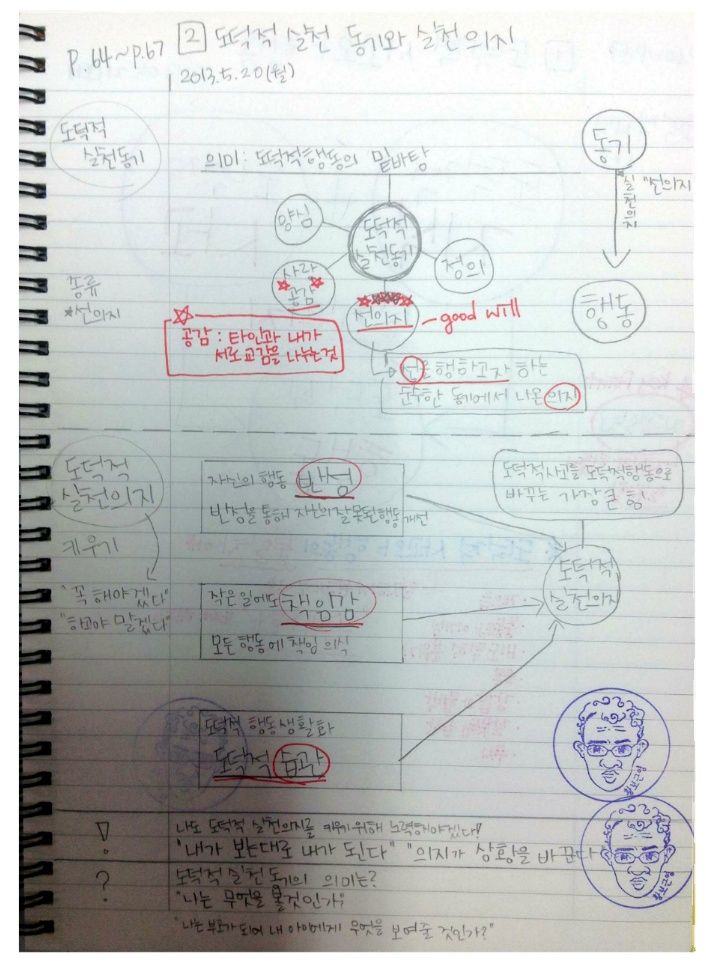 p.64~p.67 2 도덕적 실천 동기와 실천의지
2013.5.20(월)
도덕적
실천동기
의미: 도덕적행동의 밑바탕
동기
실천의지
"선의지
행동
양심
도덕적
실천동기
정의
사랑
공감
선의지
good will
종류
*선의지
공감 : 타인과 내가
서로 교감을 나누는것
선을 행하고자 하는
순수한 동기에서 나온 의지
도덕적
실천의지
키우기
"꼭 해야겠다"
"하고야 말겠다"
자신의 행동 반성
반성을 통해 자신의 잘못된 행동 개선
도덕적사고를 도덕적행동으로
바꾸는 가장 큰 힘
도덕적
실천의지
작은 일에도 책임감
모든 행동에 책임 의식
도덕적 행동 생활화
도덕적 습관
!
나도 도덕적 실천의지를 키우기 위해 노력해야겠다!
"내가 본대로 내가 된다" "의지가 상황을 바꾼다
?
도덕적 실천 동기의 의미는?
"나는 무엇을 볼것인가"
"나는 부모가 되어 내 아이에게 무엇을 보여줄 것인가?"